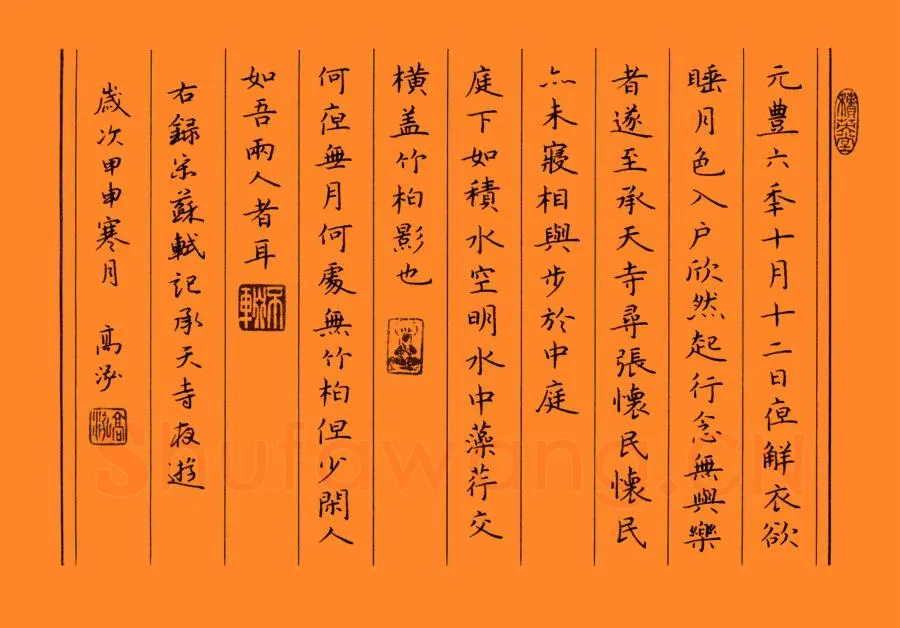 元豐六季十月十二日夜解衣欲
睡月色入户欣然起行念無與樂
者遂至承天寺尋張懷民懷民
亦未寢相與步於中庭
庭下如積水空明水中藻荇交
橫盖竹柏影也
何夜無月何處無竹柏但少閑人
如吾兩人者耳
右録宋蘇軾記承天寺夜遊
歲次甲申寒月 高泓
Shufawang.CN